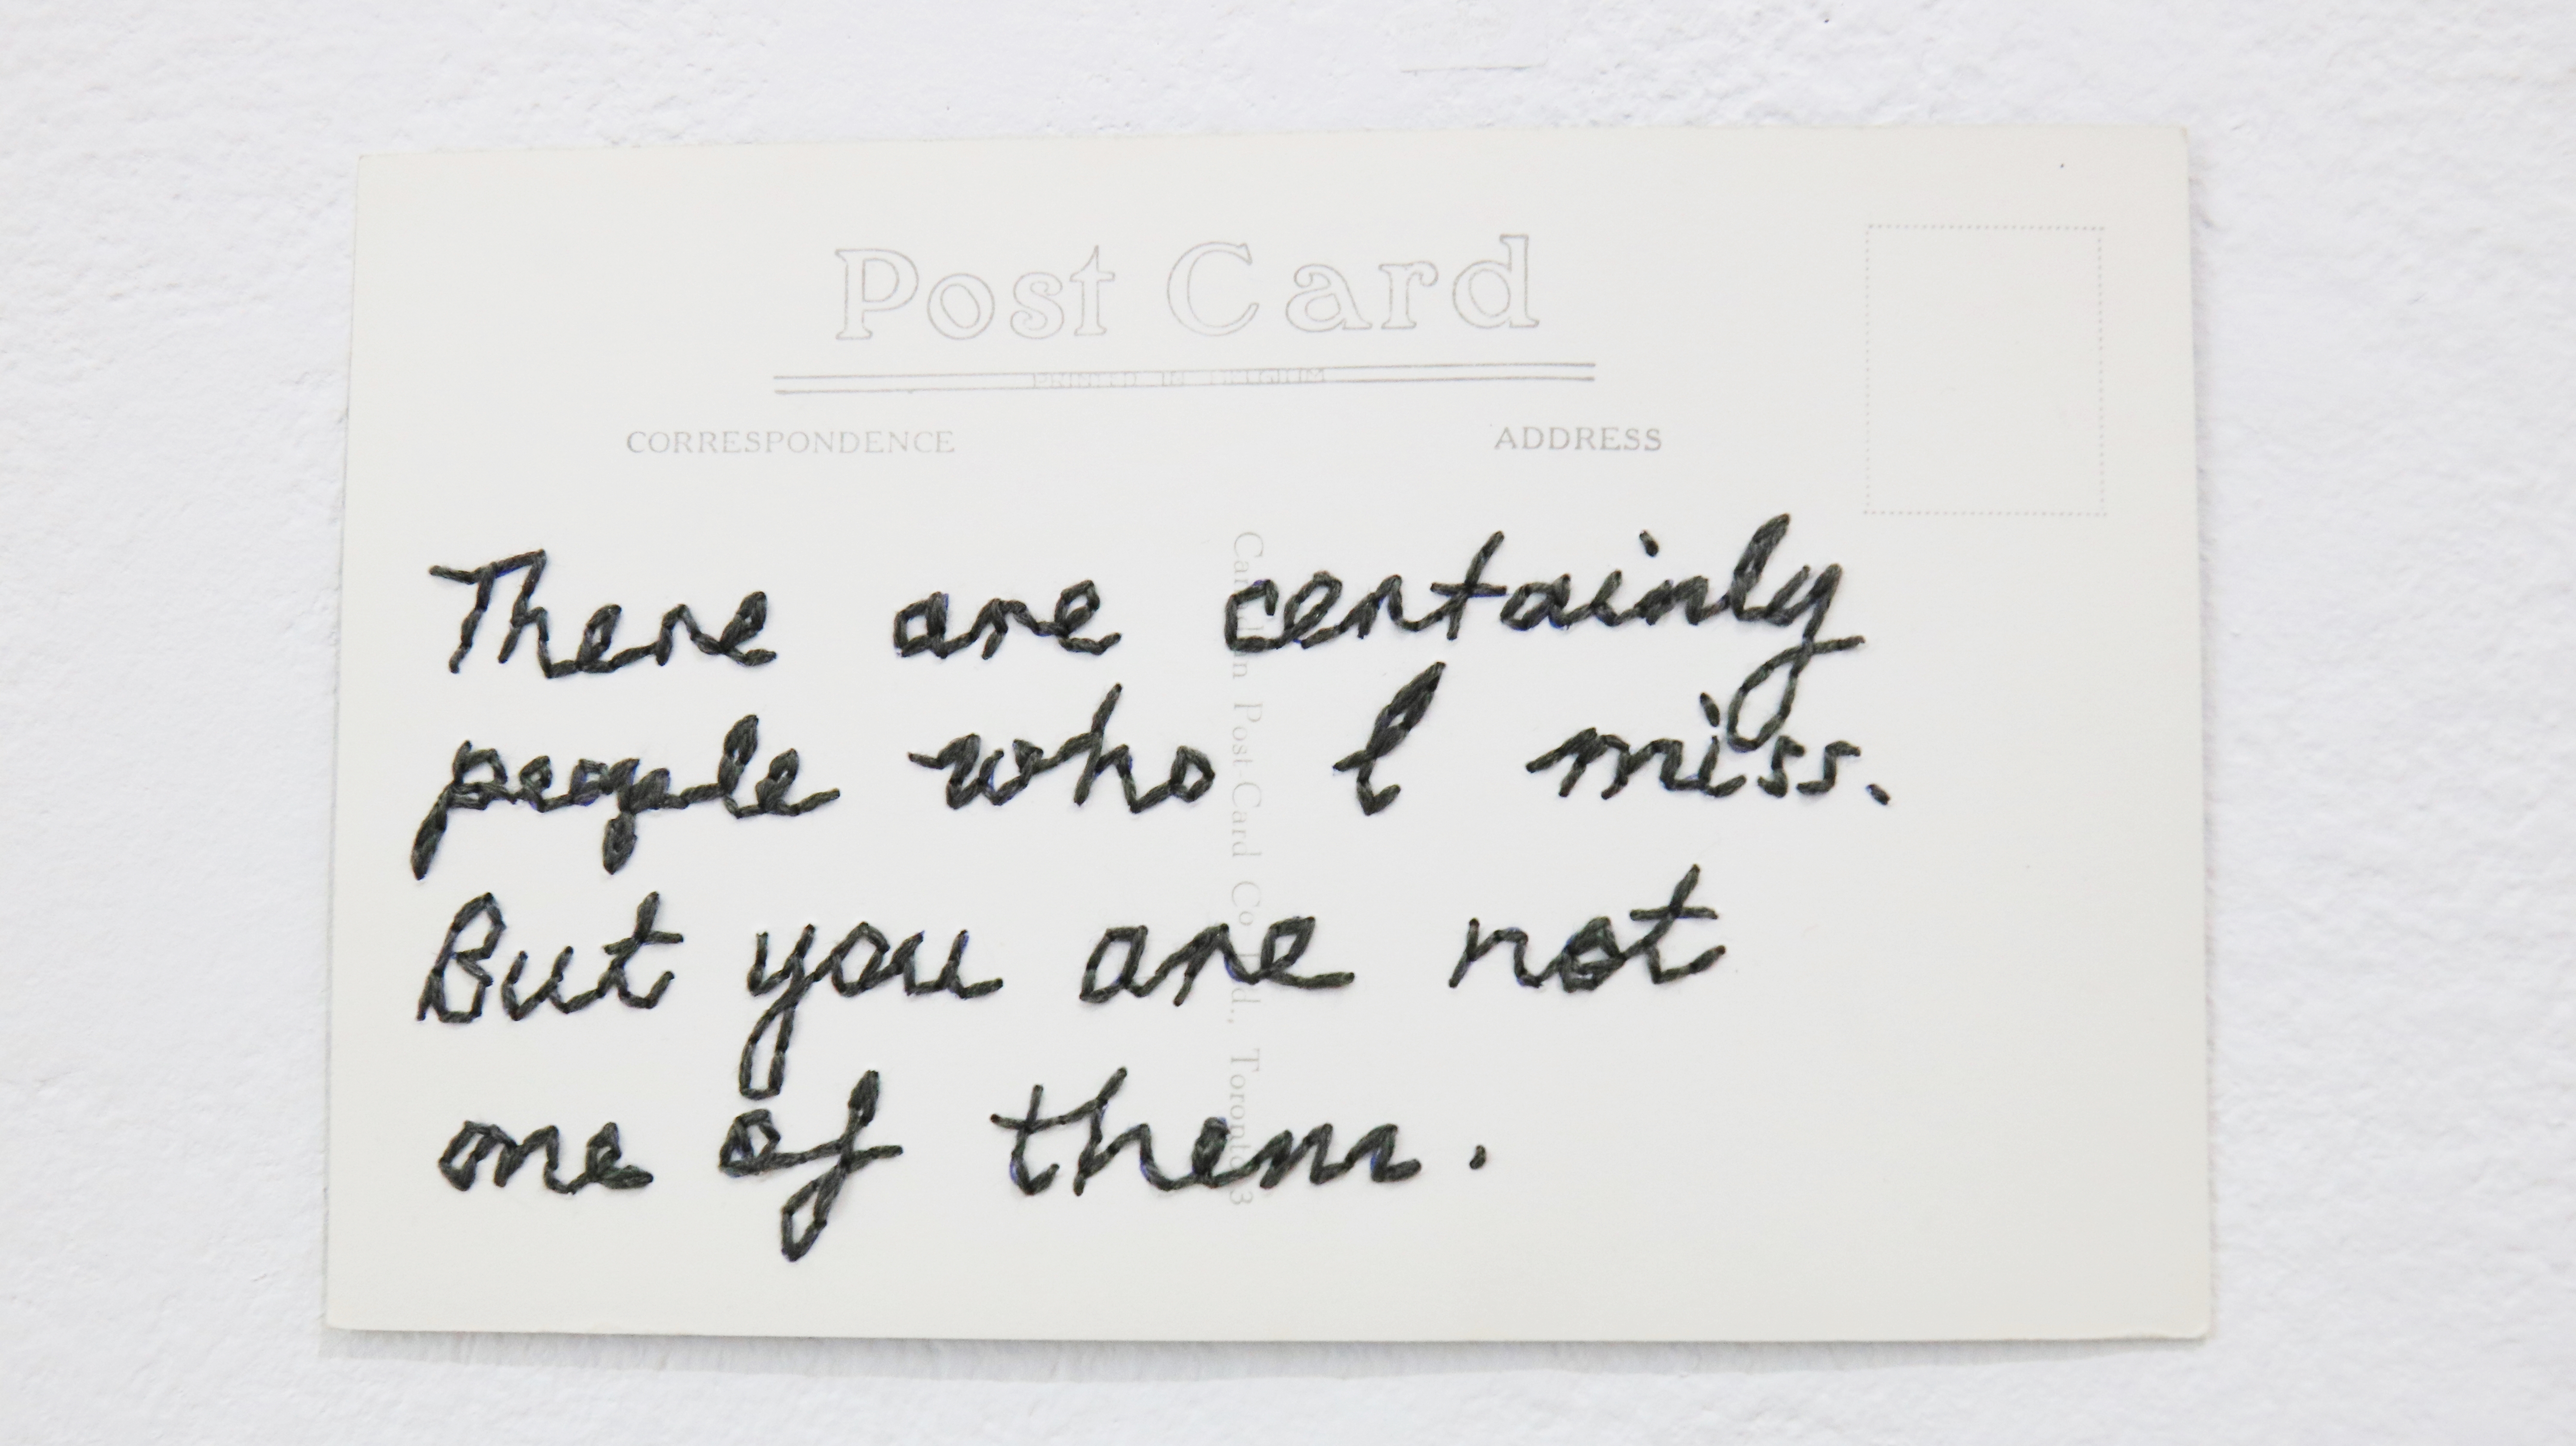 Post Card
PRINTED IN BELGIUM
CORRESPONDENCE ADDRESS
There are certainly
people who I miss.
But you are not
one of them.
Canadian Post-Card Co. Ltd., Toronto 3